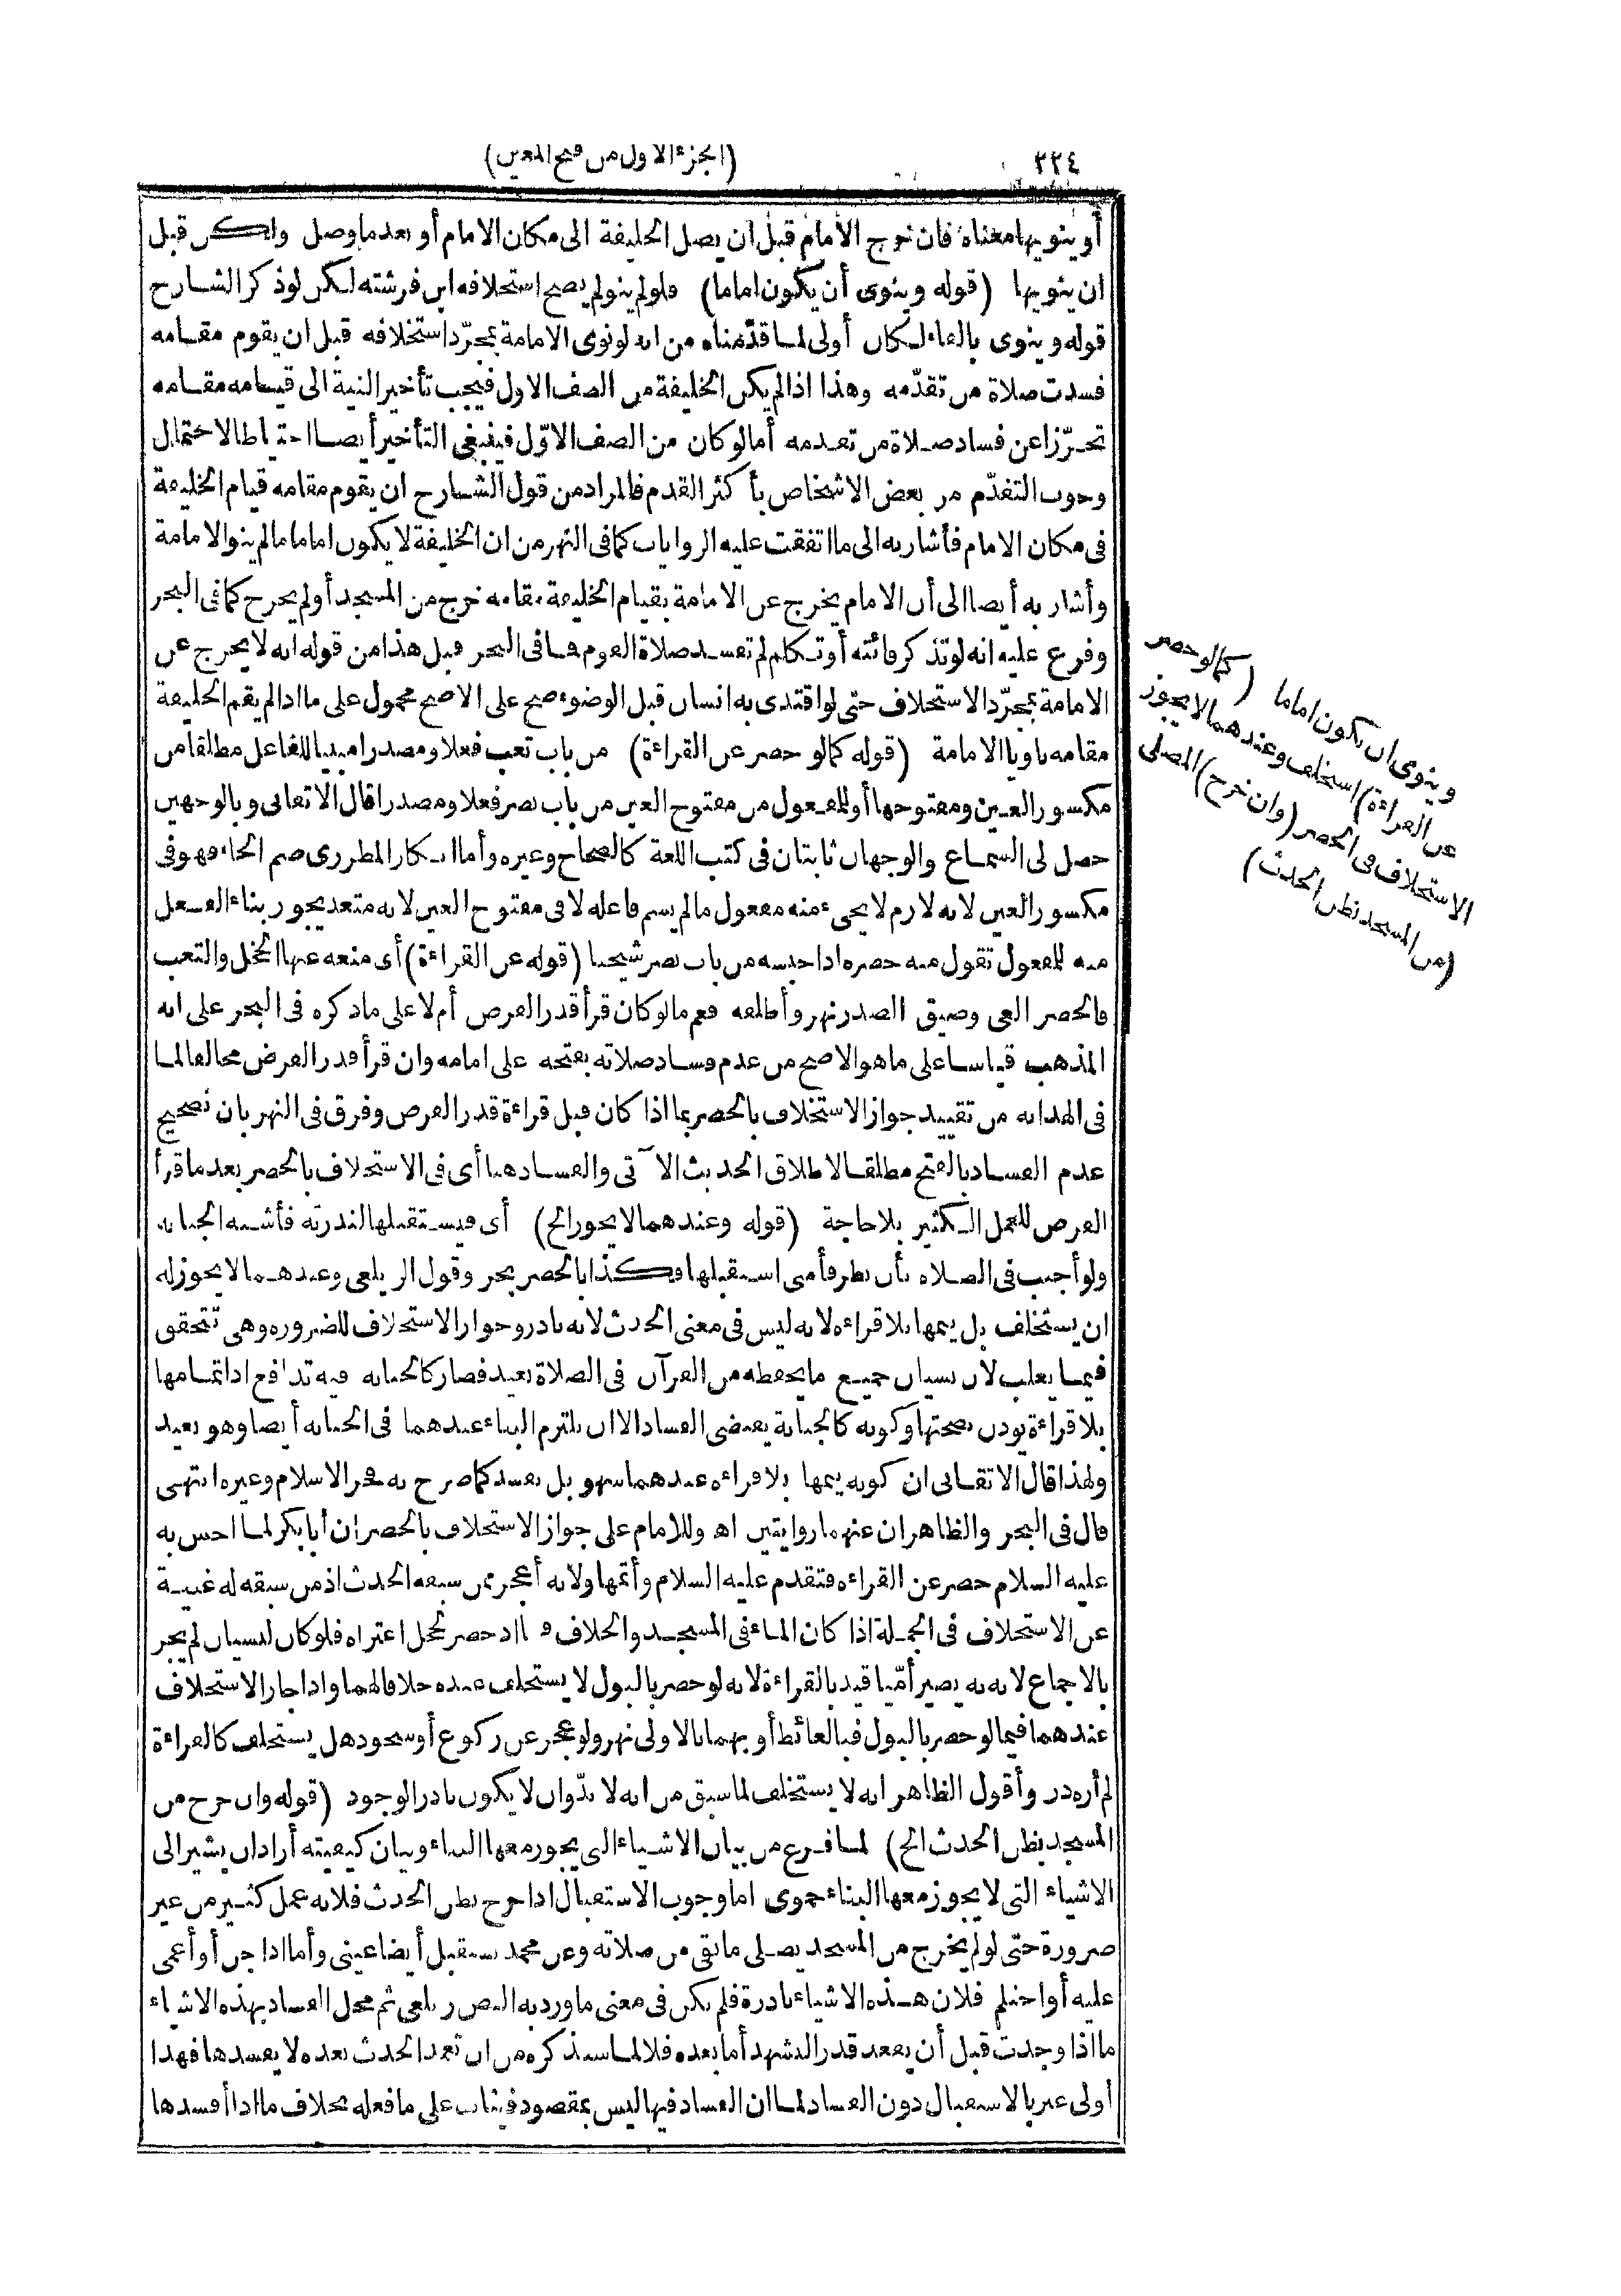 ٢٢٤
(الجزء الاول من فتح المعين)
أو ينويها معناه فان خرج الامام قبل ان يصل الخليفة الى مكان الامام أو بعد ما وصل ولكن قبل
ان ينويها (قوله وينوى أن يكون اماما) فلو لم ينو لم يصح استخلافه ابن فرشته لكن لو ذكر الشارح
قوله وينوى بالفاء لكان أولى لما قدّمناه من انه لو نوى الامامة بمجرّد استخلافه قبل ان يقوم مقامه
فسدت صلاة من تقدّمه وهذا اذا لم يكن الخليفة من الصف الاول فيجب تأخير النية الى قيامه مقامه
تحرّزا عن فساد صلاة من تقدمه أما لو كان من الصف الاوّل فينبغى التأخير أيضا احتياطا لاحتمال
وجوب التقدّم من بعض الاشخاص بأكثر القدم فالمراد من قول الشارح ان يقوم مقامه قيام الخليفة
فى مكان الامام فأشار به الى ما اتفقت عليه الروايات كما فى النهر من ان الخليفة لا يكون اماما ما لم ينو الامامة
وأشار به أيضا الى أن الامام يخرج عن الامامة بقيام الخليفة مقامه خرج من المسجد أو لم يخرج كما فى البحر
وفرع عليه انه لو تذكر فائتة أو تكلم لم تفسد صلاة القوم فما فى البحر قبل هذا من قوله انه لا يخرج عن
الامامة بمجرّد الاستخلاف حتى لو اقتدى به انسان قبل الوضوء صح على الاصح محمول على ما اذا لم يقم الخليفة
مقامه ناويا الامامة (قوله كما لو حصر عن القراءة) من باب تعب فعلا ومصدرا مبنيا للفاعل مطلقا من
مكسور العين ومفتوحها أو للمفعول من مفتوح العين من باب نصر فعلا ومصدرا قال الاتقانى وبالوجهين
حصل لى السماع والوجهان ثابتان فى كتب اللغة كالصحاح وغيره وأما انكار المطرزى ضم الحاء فهو فى
مكسور العين لانه لازم لا يجىء منه مفعول ما لم يسم فاعله لا فى مفتوح العين لانه متعد يجوز بناء الفعل
منه للمفعول تقول منه حصره اذا حبسه من باب نصر شيخنا (قوله عن القراءة) أى منعه عنها الخجل والتعب
فالحصر العى وضيق الصدر نهر وأطلقه فعم ما لو كان قرأ قدر الفرض أم لا على ما ذكره فى البحر على انه
المذهب قياسا على ما هو الاصح من عدم فساد صلاته بفتحه على امامه وان قرأ قدر الفرض مخالفا لما
فى الهداية من تقييد جواز الاستخلاف بالحصر بما اذا كان قبل قراءة قدر الفرض وفرق فى النهر بان تصحيح
عدم الفساد بالفتح مطلقا لاطلاق الحديث الآتى والفساد هنا أى فى الاستخلاف بالحصر بعد ما قرأ
الفرض للعمل الكثير بلا حاجة (قوله وعندهما لا يجوز الخ) أى فيستقبلها لندرته فأشبه الجنابة
ولو أجنب فى الصلاة بأن نظر فأمنى استقبلها فكذا بالحصر بحر وقول الزيلعى وعندهما لا يجوز له
ان يستخلف بل يتمها بلا قراءة لانه ليس فى معنى الحدث لانه نادر وجواز الاستخلاف للضرورة وهى تتحقق
فيما يغلب لان نسيان جميع ما يحفظه من القرآن فى الصلاة بعيد فصار كالجنابة فيه تدافع اذ اتمامها
بلا قراءة يؤذن بصحتها وكونه كالجنابة يقتضى الفساد الا ان يلتزم البناء عندهما فى الجنابة أيضا وهو بعيد
ولهذا قال الاتقانى ان كونه يتمها بلا قراءة عندهما سهو بل تفسد كما صرح به فخر الاسلام وغيره انتهى
قال فى البحر والظاهر ان عنهما روايتين اه وللامام على جواز الاستخلاف بالحصر ان أبا بكر لما احس به
عليه السلام حصر عن القراءة فتقدم عليه السلام وأتمها ولانه أعجز ممن سبقه الحدث اذ من سبقه له غنية
عن الاستخلاف فى الجملة اذا كان الماء فى المسجد والخلاف فيما اذ حصر لخجل اعتراه فلو كان لنسيان لم يجز
بالاجماع لانه به يصير أمّيا قيد بالقراءة لانه لو حصر بالبول لا يستخلف عنده خلافا لهما واذا جاز الاستخلاف
عندهما فيما لو حصر بالبول فبالغائط أو بهما بالاولى نهر ولو عجز عن ركوع أو سجود هل يستخلف كالقراءة
لم أره در وأقول الظاهر انه لا يستخلف لما سبق من انه لا بدّ وان لا يكون نادر الوجود (قوله وان خرج من
المسجد بظن الحدث الخ) لما فرغ من بيان الاشياء التى يجوز معها البناء وبيان كيفيته أراد ان يشير الى
الاشياء التى لا يجوز معها البناء حموى اما وجوب الاستقبال اذا خرج بظن الحدث فلانه عمل كثير من غير
ضرورة حتى لو لم يخرج من المسجد يصلى ما بقى من صلاته وعن محمد يستقبل أيضا عينى وأما اذا جن أو أغمى
عليه أو احتلم فلان هذه الاشياء نادرة فلم يكن فى معنى ما ورد به النص زيلعى ثم محل الفساد بهذه الاشياء
ما اذا وجدت قبل أن يقعد قدر التشهد أما بعده فلا لما سيذكره من ان تعمد الحدث بعده لا يفسدها فهذا
أولى عبر بالاستقبال دون الفساد لما ان الفساد فيها ليس بمقصود فيثاب على ما فعله بخلاف ما اذا أفسدها
وينوى ان يكون اماما (كما لو حصر
عن القراءة) استخلف وعندهما لا يجوز
الاستخلاف فى الحصر (وان خرج) المصلى
(من المسجد بظن الحدث)